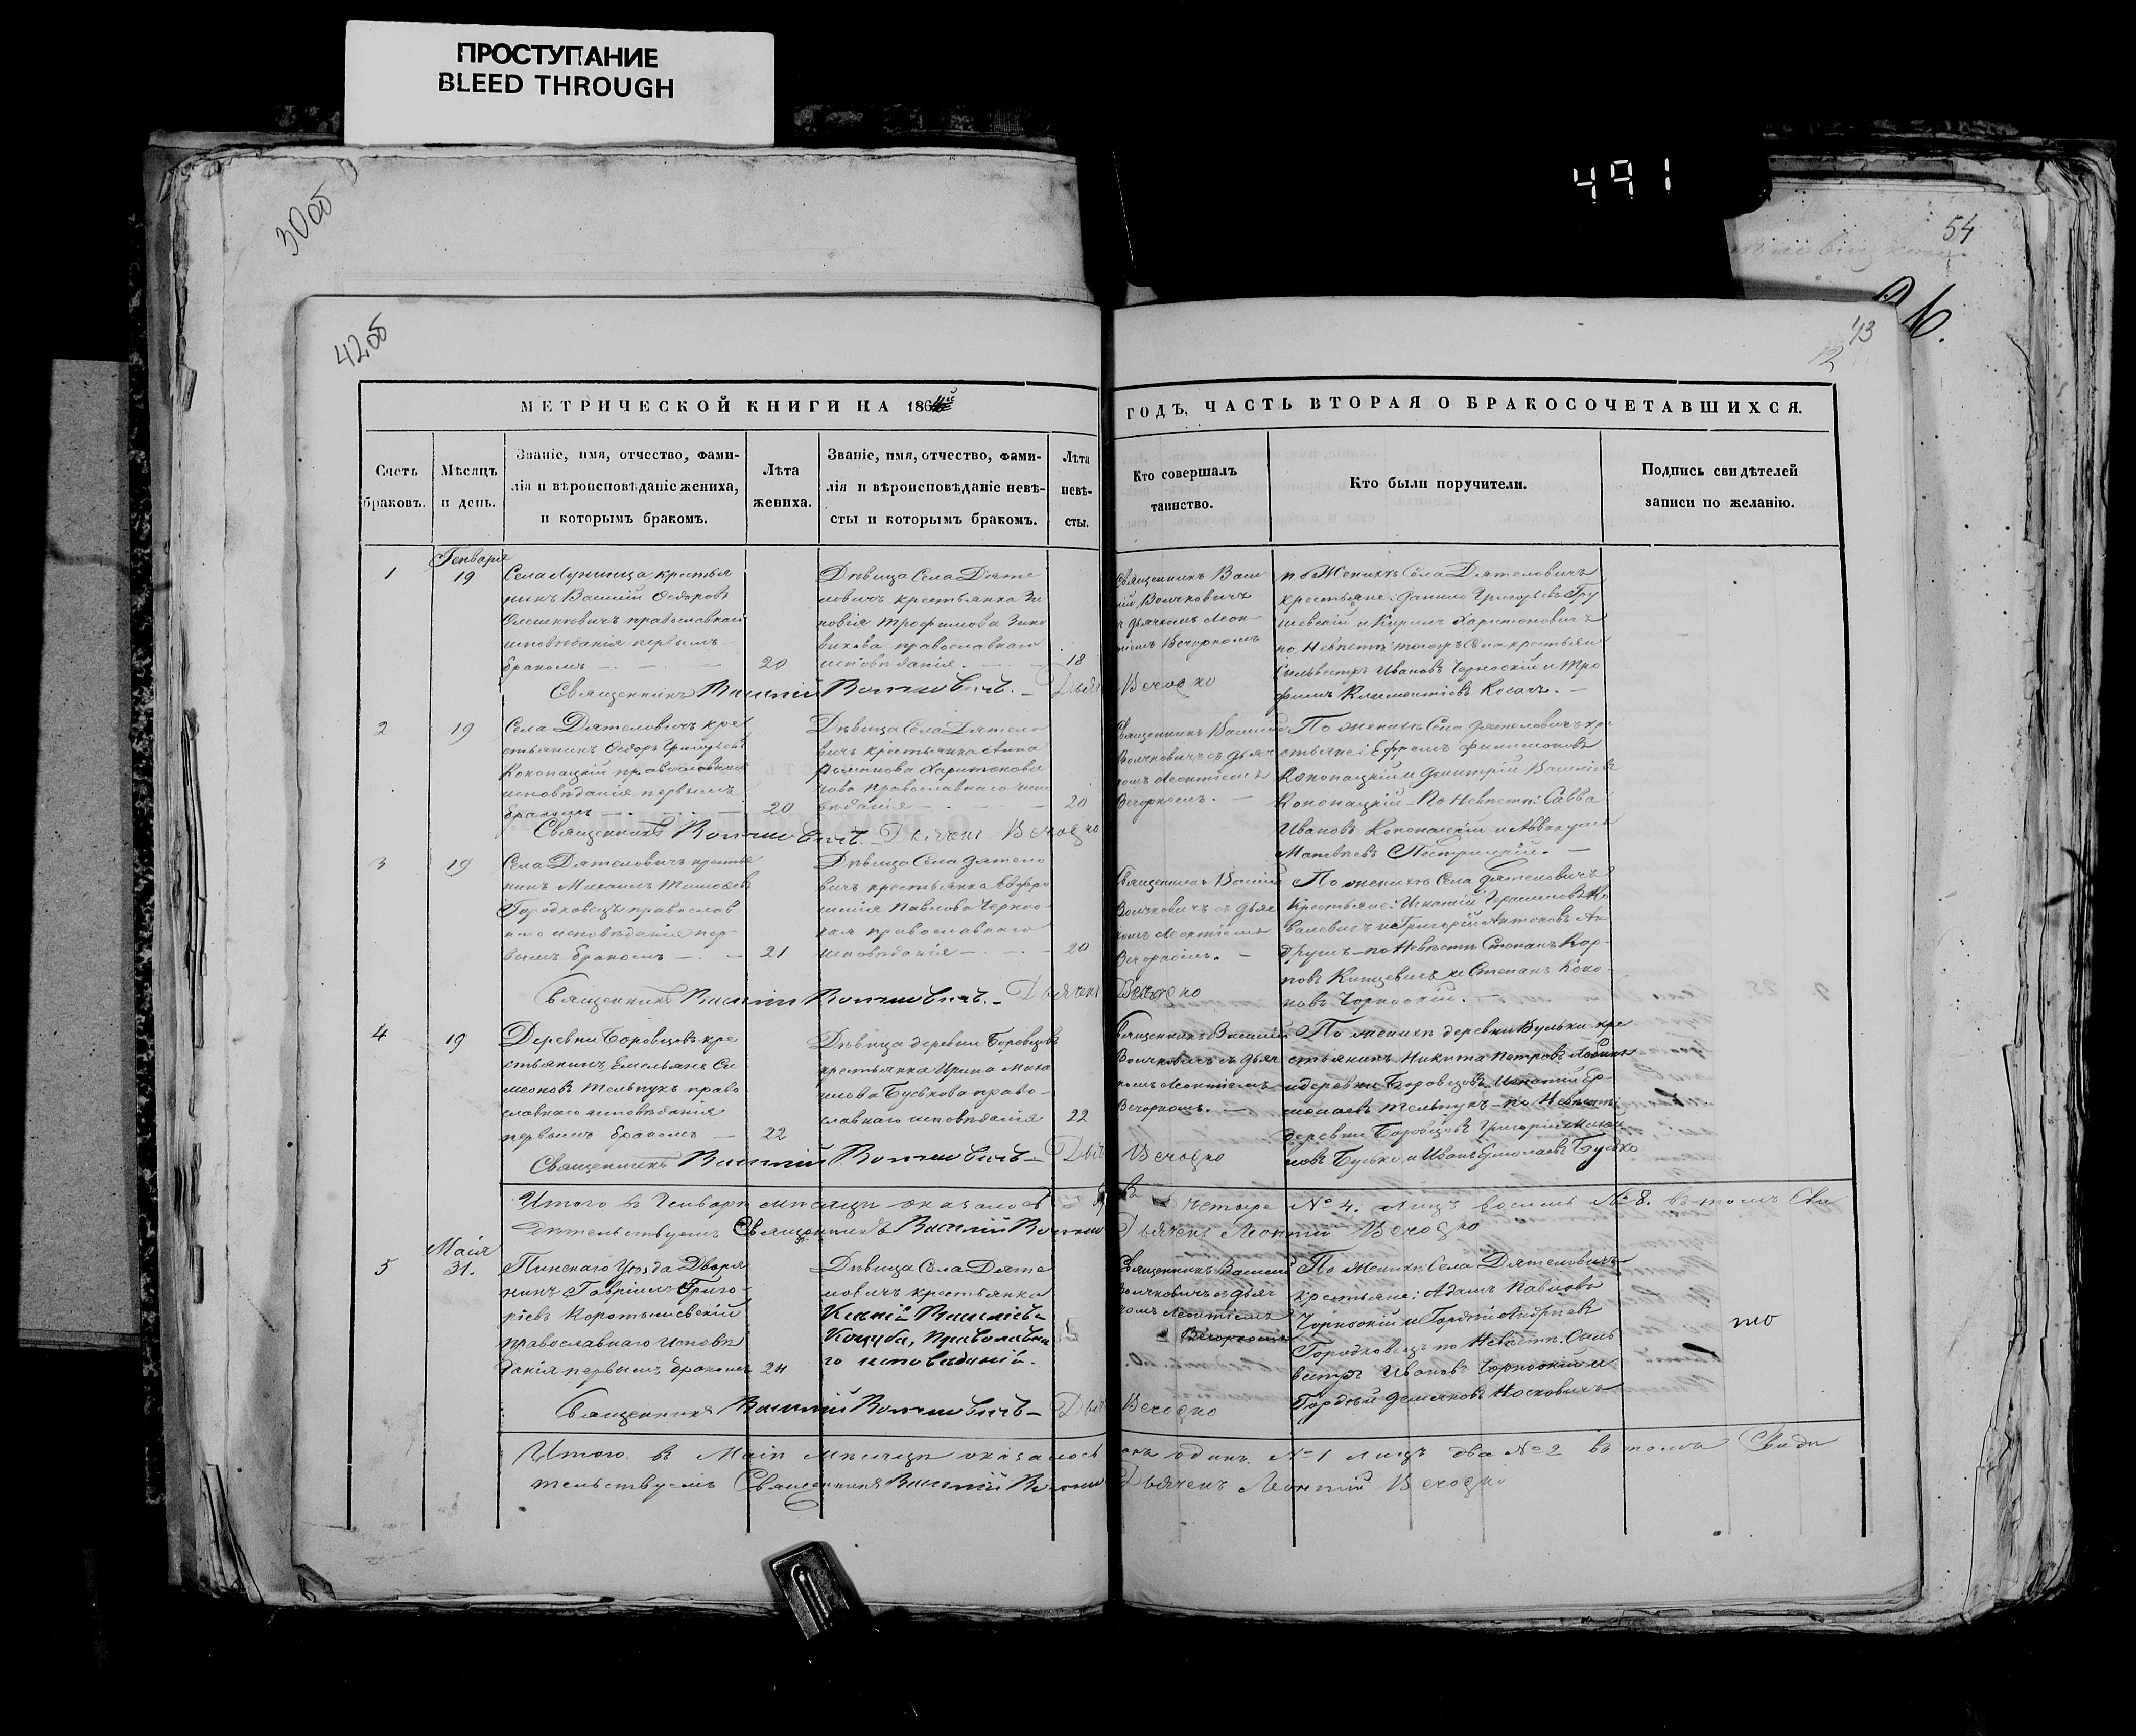 ПРОСТУПАНИЕ
BLEED THROUGH
491
30об
54
42об
43
12
МЕТРИЧЕСКОЙ КНИГИ НА 186
ГОДЪ, ЧАСТЬ ВТОРАЯ О БРАКОСОЧЕТАВШИХСЯ.
Счетъ браковъ.
Мѣсяцъ и день.
Званіе, имя, отчество, фами-
лія и вѣроисповѣданіе жениха,
и которымъ бракомъ.
Лѣта жениха.
Званіе, имя, отчество, фами-
лія и вѣроисповѣданіе невѣ-
сты и которымъ бракомъ.
Лѣта невѣ-
сты.
Кто совершалъ
таинство.
Кто были поручители.
Подпись свидѣтелей
записи по желанію.
1
Генваря
19
Села Лунинца крестья
нинъ Василій Ѳедоровъ
православнаго
исповѣданія первымъ
бракомъ
20
Дѣвица Села Дяте
ловичъ крестьянка Зи
новія Трофимова
православнаго
исповѣданія.
18
Священникъ Васи
лій Волчковичъ
съ дьячкомъ Леон-
тіемъ Вечоркомъ
по Женихѣ Села Дятеловичъ
крестьяне: Данило Григорьевъ Гру
шевскій и Кирилъ Харитоновичъ
по Невѣстѣ тогожъ Села крестьяне
Сильвестръ Ивановъ Чорноокій и Тро
фимъ Климентіевъ Косачъ.
Священникъ Василій Волчковичъ. Дьячекъ Вечорко
2
19
Села Дятеловичъ кре
стьянинъ Ѳедоръ Григорьевъ
Конопацкій православнаго
исповѣданія первымъ
бракомъ
20
Дѣвица Села Дятело
вичъ крестьянка Анна
Романова Харитонови
чова православнаго испо
вѣданія
20
Священникъ Василій
Волчковичъ съ дьяч
комъ Леонтіемъ
Вечоркомъ.
По женихѣ Села Дятеловичъ кре
стьяне: Ефремъ Филимоновъ
Конопацкій и Дмитрій Василіевъ
Конопацкій - По Невѣстѣ: Савва
Ивановъ Конопацкій и Аввакумъ
Матвѣевъ
Священникъ Волчковичъ. Дьячекъ Вечорко
3
19
Села Дятеловичъ крестья
нинъ Михаилъ Тимоѳеевъ
Городковецъ православ
наго исповѣданія пер-
вымъ бракомъ
21
Дѣвица Села Дятело
вичъ крестьянка Евфро
синія Павлова Черноо-
кая православнаго
исповѣданія
20
Священникъ Василій
Волчковичъ съ дьяч
комъ Леонтіемъ
Вечоркомъ.
По женихѣ Села Дятеловичъ
Крестьяне: Игнатій Герасимовъ Ко
валевичъ и Григорій Антоновъ Ан
друшъ по Невѣстѣ Степанъ Кар-
повъ и Степанъ Коно-
новъ Чорноокій.
Священникъ Василій Волчковичъ. Дьячекъ Вечорко
4
19
Деревни Боровцовъ кре
стьянинъ Емельянъ Си
меоновъ Мельпухъ право
славнаго исповѣданія
первымъ бракомъ
22
Дѣвица деревни Боровцовъ
крестьянка Ирина Миха
илова Буськова право-
славнаго исповѣданія
22
Священникъ Василій
Волчковичъ съ дьяч
комъ Леонтіемъ
Вечоркомъ.
По женихѣ деревни Вульки кре
стьянинъ Никита Петровъ
и деревни Боровцовъ Игнатій Ер
молаевъ Мельпухъ - по Невѣстѣ
деревни Боровцовъ Григорій Михаи
ловъ Бусько и Иванъ Ермолаевъ Бусько
Священникъ Василій Волчковичъ Дьяч Вечорко
Итого в Генварѣ мѣсяцѣ оказалось четыре № 4. Лицъ восемь № 8. въ томъ Сви
дѣтельствуемъ Священникъ Василій Волчков Дьячекъ Леонтій Вечорко
5
Маія
31.
Пинскаго Уѣзда Дворя
нинъ Гавріилъ Григо-
рьевъ Коротышевскій
православнаго исповѣ
данія первымъ бракомъ
24
Дѣвица Села Дяте
ловичъ крестьянка
Василіева
Коцуба, православна
го исповѣданія.
Священникъ Василій
Волчковичъ съ дьяч
комъ Леонтіемъ
Вечоркомъ
По Женихѣ Села Дятеловичъ
Крестьяне: Адамъ Павловъ
Чорноокій и Гордѣй Андреевъ
Городковецъ по Невѣстѣ: Силь
вестръ Ивановъ Чорноокій и
Гордѣй Демьяновъ Носковичъ
Священникъ Василій Волчковичъ Дьяч Вечорко
Итого в Маіѣ мѣсяцѣ оказалось одинъ № 1 лицъ два № 2 въ томъ Свидѣ
тельствуемъ Священникъ Василій Волчков Дьячекъ Леонтій Вечорко